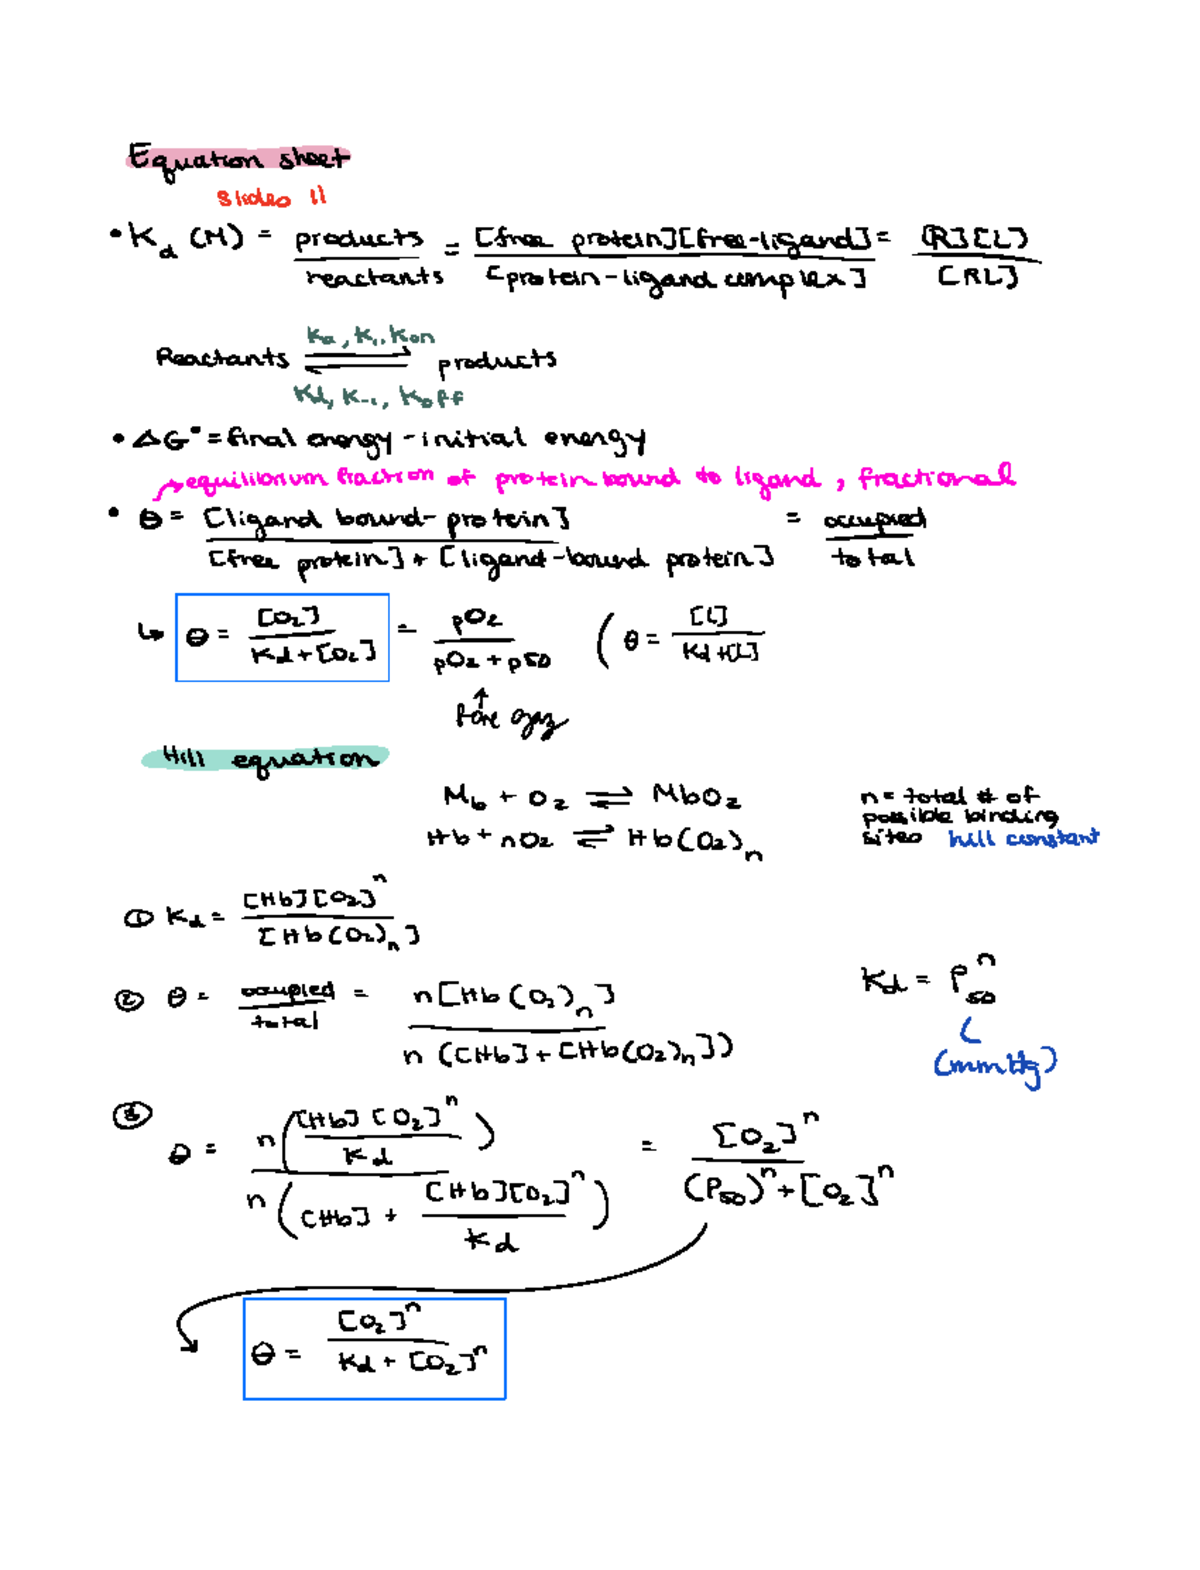 Equation sheet
slides 11
• Kd (M) = products / reactants = [free protein][free-ligand] / [protein-ligand complex] = [R][L] / [RL]
Ka, K1, Kon
Reactants ⇌ products
Kd, K-1, Koff
• ΔG° = final energy - initial energy
→ equilibrium fraction of protein bound to ligand, fractional
• θ = [ligand bound-protein] / [free protein] + [ligand-bound protein] = occupied / total
↳ θ = [O2] / Kd + [O2] = pO2 / pO2 + p50 ( θ = [L] / Kd + [L]
↑
Hill equation
Mb + O2 ⇌ MbO2
Hb + nO2 ⇌ Hb(O2)n
n = total # of
possible binding
sites hill constant
① Kd = [Hb][O2]^n / [Hb(O2)n]
② θ = occupied / total = n[Hb(O2)n] / n([Hb] + [Hb(O2)n])
Kd = P50^n
(mmHg)
③ θ = n([Hb][O2]^n / Kd) / n([Hb] + [Hb][O2]^n / Kd) = [O2]^n / (P50)^n + [O2]^n
θ = [O2]^n / Kd + [O2]^n